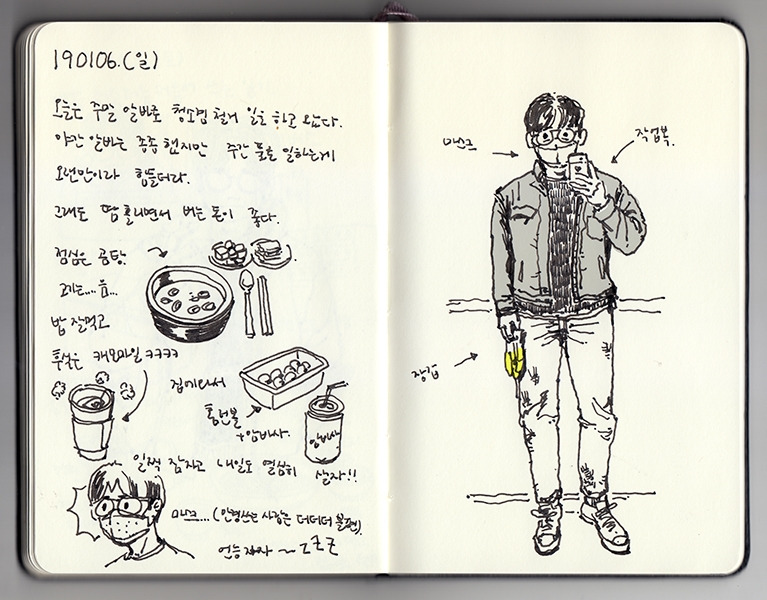 190106.(일)
오늘은 주말 알바로 청소겸 철거 일을 하고 왔다.
야간 알바는 종종 했지만 주간 풀로 일하는게
오랜만이라 힘들더라.
그래도 땀 흘리면서 버는 돈이 좋다.
점심은 곰탕
고기는....음...
밥 잘먹고
후식은 캐모마일 ㅋㅋㅋㅋ
집에와서
통
+암바사.
암바사
일찍 잠자고 내일도 열심히 살자!!
마스크... (안경쓰는 사람은 더더더 불편).
언능자자 ~ ㄷㅋㅋ
마스크
작업복.
장갑